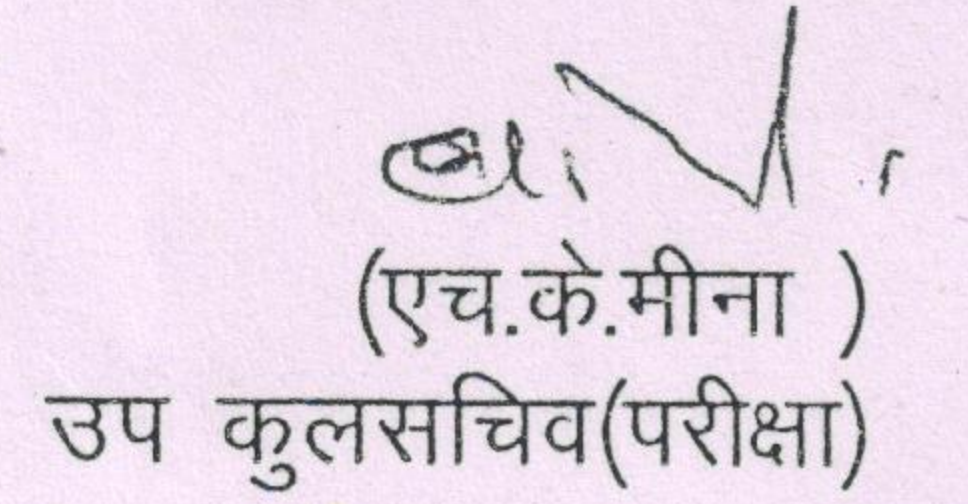 (एच.के.मीना )
उप कुलसचिव(परीक्षा)